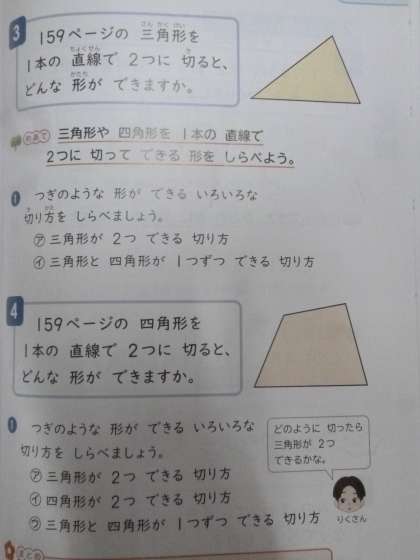 3
159ページの 三角形を
1本の 直線で 2つに 切ると、
どんな 形が できますか。
めあて 三角形や 四角形を 1本の 直線で
2つに 切って できる 形を しらべよう。
1 つぎのような 形が できる いろいろな
切り方を しらべましょう。
㋐ 三角形が 2つ できる 切り方
㋑ 三角形と 四角形が 1つずつ できる 切り方
4
159ページの 四角形を
1本の 直線で 2つに 切ると、
どんな 形が できますか。
1 つぎのような 形が できる いろいろな
切り方を しらべましょう。
㋐ 三角形が 2つ できる 切り方
㋑ 四角形が 2つ できる 切り方
㋒ 三角形と 四角形が 1つずつ できる 切り方
どのように 切ったら
三角形が 2つ
できるかな。
りくさん
まとめ